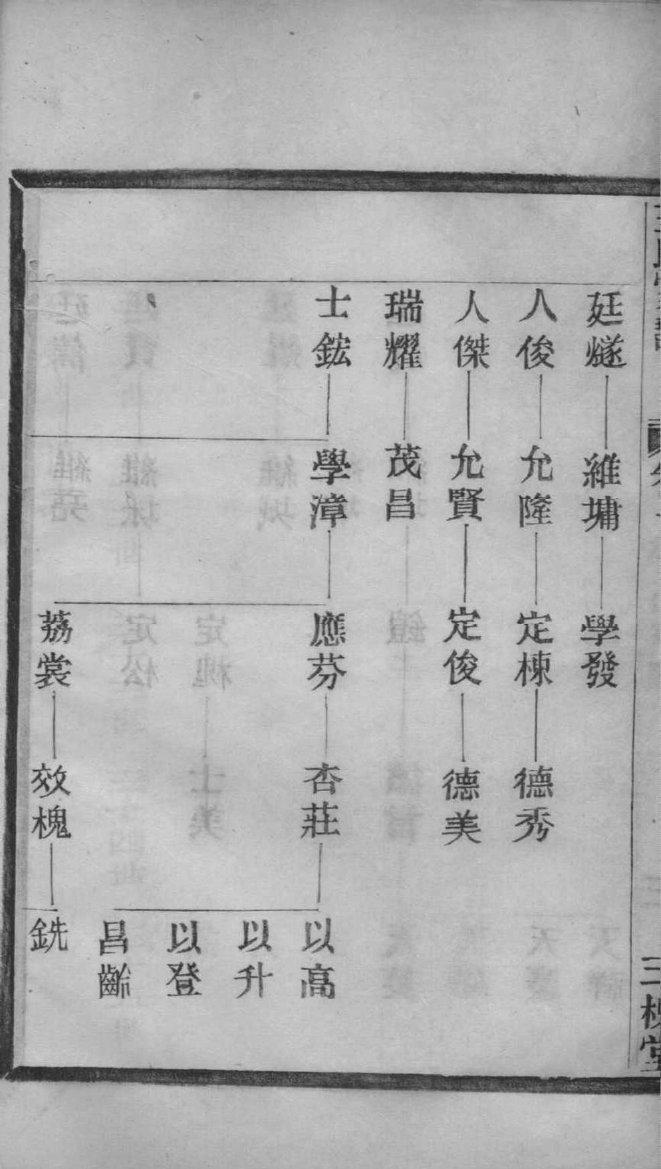 廷燧 維墉 學發
人俊 允隆 定棟 德秀
人傑 允賢 定俊 德美
瑞耀 茂昌
士鋐 學漳 應芬 杏莊 以高
以升
以登
昌齡
荔裳 效槐 銑
三槐堂